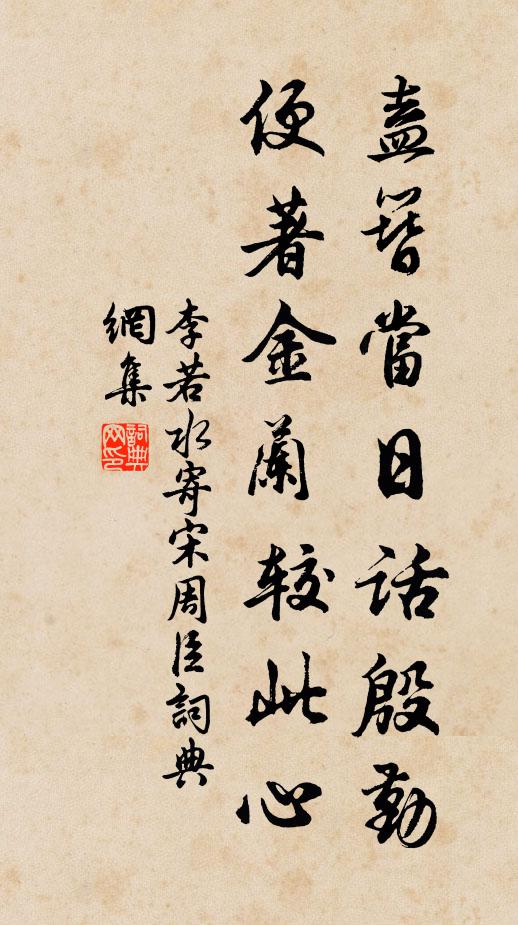 盍簪當日話殷勤
便著金蘭較此心
李若水寄宋周臣詞典
網集
詞典網印